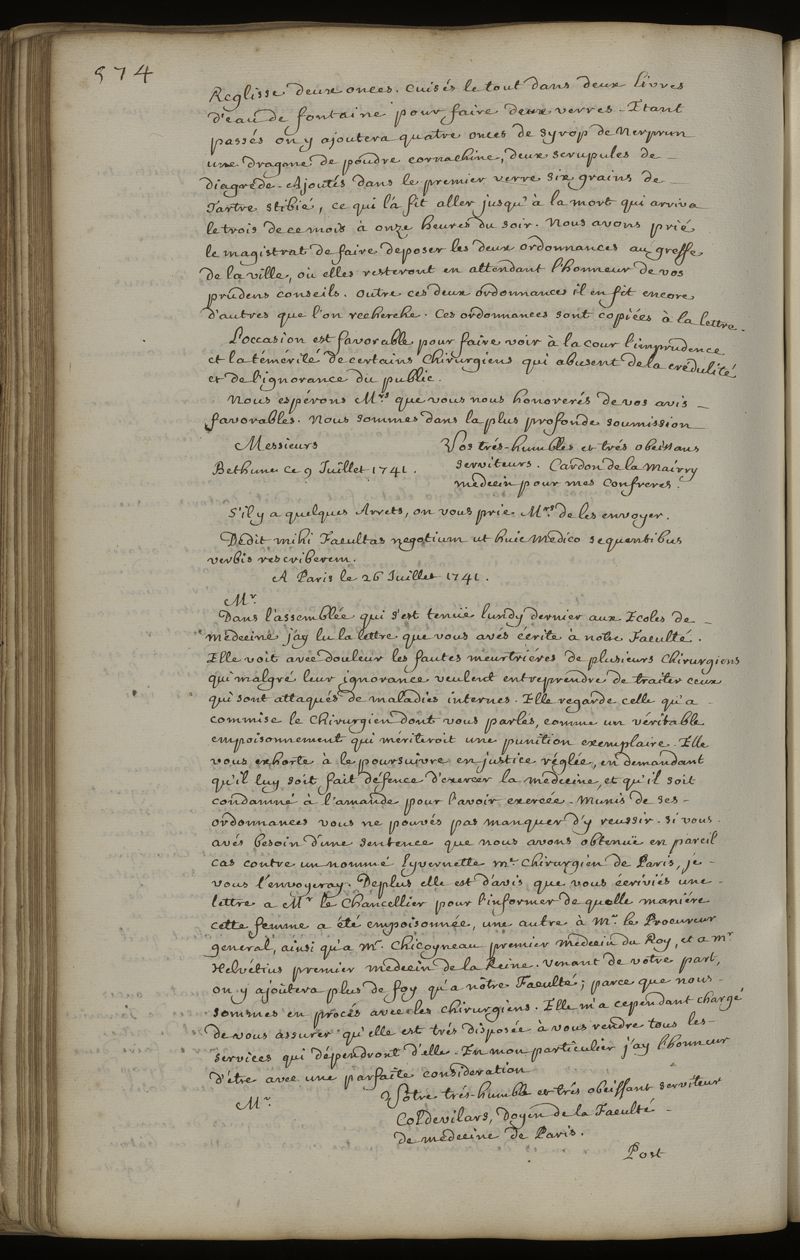 574
Reglisse deux onces. Cuisés le tout dans deux livres
d'eau de fontaine pour faire deux verres. Etant
passés on y ajoutera quatre onces de Syrop de Nerprun
une dragme de poudre cornachine, deux scrupules de
diagrede. Ajoutés dans le premier verre six grains de
Tartre stibié, ce qui l'a fit aller jusqu'à la mort qui arriva
le trois de ce mois à onze heures du soir. Nous avons prié
le magistrat de faire deposer les deux ordonnances au greffe
de la ville, où elles resteront en attendant l'honneur de vos
prudens conseils. Outre ces deux ordonnances il en fit encore
d'autres que l'on recherche. Ces ordonnances sont copiées à la lettre.
L'occasion est favorable pour faire voir à la cour l'imprudence
et la témérité de certains Chirurgiens qui abusent de la crédulité
et de l'ignorance du public.
Nous espérons Mrs que vous nous honorerés de vos avis
favorables. Nous sommes dans la plus profonde soumission
Messieurs
Vos trés-humbles et trés obeissans
Bethune ce 9 Juillet 1741.
serviteurs. Cardon de la Mairry
médecin pour mes confreres.
S'il y a quelques Arrets, on vous prie Mrs de les envoyer.
Dedit mihi Facultas negotium ut huic medico sequentibus
verbis rescriberem.
A Paris le 26 Juillet 1741.
Mr.
Dans l'assemblée qui s'est tenuë lundy dernier aux Ecoles de
médecine j'ay lu la lettre que vous avés écrite à notre Faculté.
Elle voit avec douleur les fautes meurtriéres de plusieurs Chirurgiens
qui malgré leur ignorance veulent entreprendre de traiter ceux
qui sont attaqués de maladies internes. Elle regarde celle qu'a
commise le Chirurgien dont vous parlés, comme un véritable
empoisonnement qui mériteroit une punition exemplaire. Elle
vous exhorte à le poursuivre en justice réglée, en demandant
qu'il luy soit fait défence d'exercer la médecine, et qu'il soit
condamné à l'amande pour l'avoir exercée. Munis de ses
ordonnances vous ne pouvés pas manquer d'y reussir. Si vous
avés besoin d'une sentence que nous avons obtenuë en pareil
cas contre un nommé Lyvernette me. Chirurgien de Paris, je
vous l'envoyeray. Deplus elle est d'avis que vous écriviés une
lettre a Mr le Chancellier pour l'informer de quelle maniére
cette femme a été empoisonnée, une autre à Mr. le Procureur
general, ainsi qu'a Mr. Chicoyneau premier medecin du Roy, et a mr
Helvétius premier medecin de la Reine. Venant de vôtre part,
on y ajoûtera plus de foy qu'a nôtre Faculté; parce que nous
sommes en procés avec les chirurgiens. Elle m'a cependant chargé
de vous assurer qu'elle est trés disposée à vous rendre tous les
services qui dépendront d'elle. En mon particulier j'ay l'honneur
d'être avec une parfaite consideration
Mr.
Vôtre trés-humble et trés obeissant serviteur
Col devilars, Doyen de la Faculté
de medecine de Paris.
Post